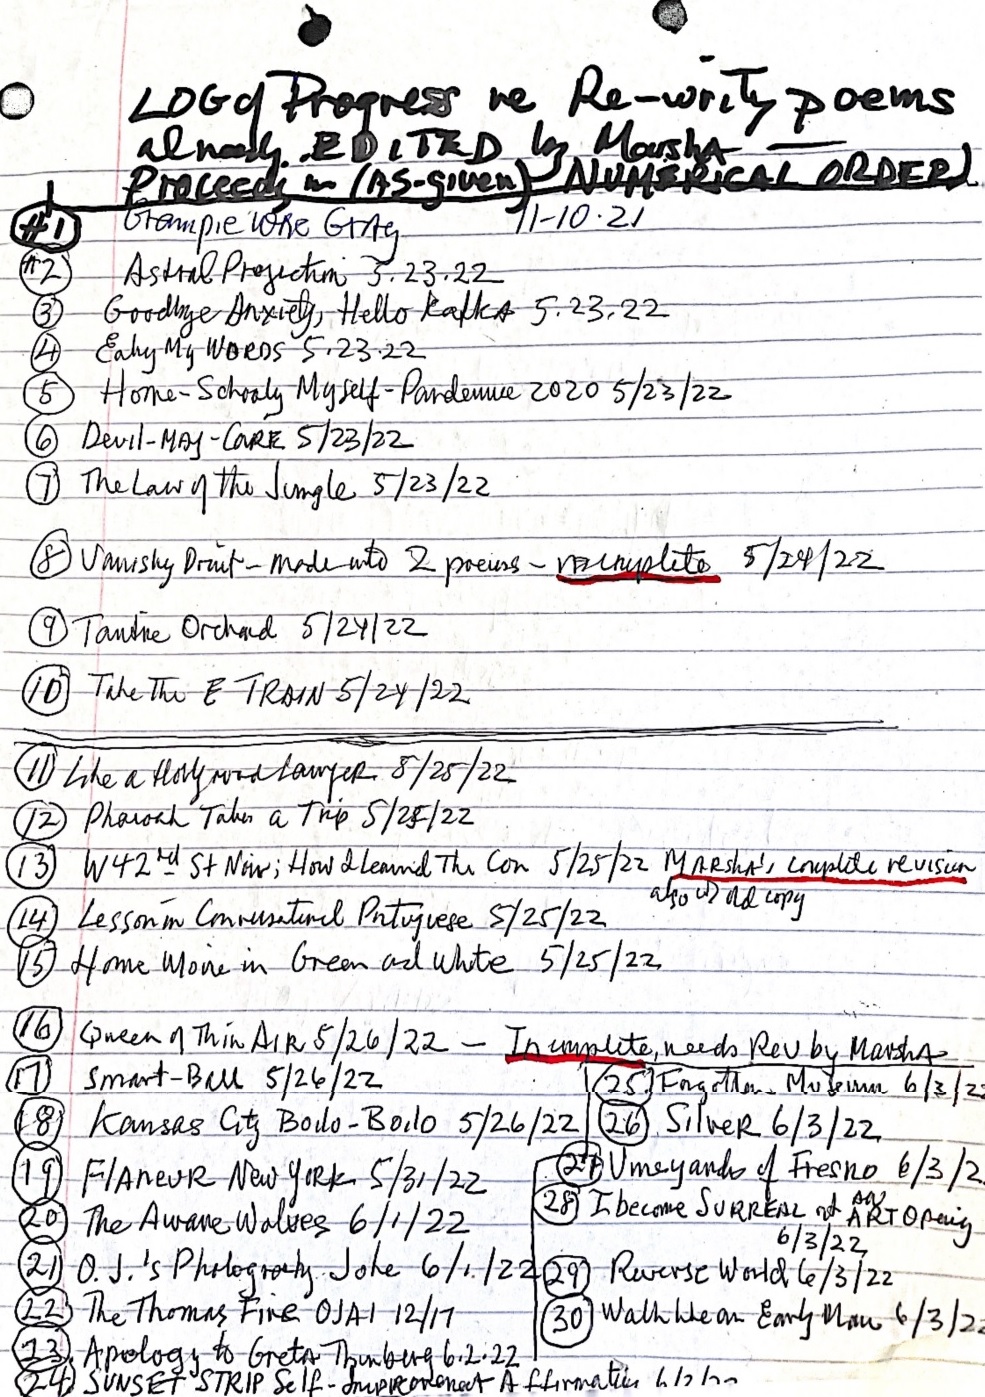 LOG of Progress re Re-writing poems
already EDITED by Marsha —
Proceeds in (AS-given) NUMERICAL ORDER)
#1 Grampie 11-10-21
#2 Astral Projection 5.23.22
3 Goodbye Anxiety, Hello Kafka 5.23.22
4 Eating My WORDS 5.23.22
5 Home-Schooling Myself-Pandemic 2020 5/23/22
6 Devil-MAY-CARE 5/23/22
7 The Law of the Jungle 5/23/22
8 Vanishing Point - made into 2 poems - 5/24/22
9 Orchard 5/24/22
10 Take The E TRAIN 5/24/22
11 Like a Hollywood Lawyer 5/25/22
12 Pharoah Takes a Trip 5/25/22
13 W 42nd St Noir; How I Learned The Con 5/25/22 MARSHA's complete revision
also w) old copy
14 Lesson in Conversational Portuguese 5/25/22
15 Home Movie in Green and White 5/25/22
16 Queen of Thin AIR 5/26/22 - Incomplete, needs Rev by Marsha
17 Smart-Ball 5/26/22
18 Kansas City Boilo-Boilo 5/26/22
19 FlANEUR New York 5/31/22
20 The Aware Wolves 6/1/22
21 O.J.'s Photography Joke 6/1/22
22 The Thomas Fire OJAI 12/17
23 Apology to Greta Thunberg 6.2.22
24 SUNSET STRIP Self-Improvement Affirmation
25 Forgotten Museum 6/3/22
26 Silver 6/3/22
27 Vineyards of Fresno 6/3/2
28 I become SURREAL at an ART Opening
6/3/22
29 Reverse World 6/3/22
30 Walk like an Early Man 6/3/22